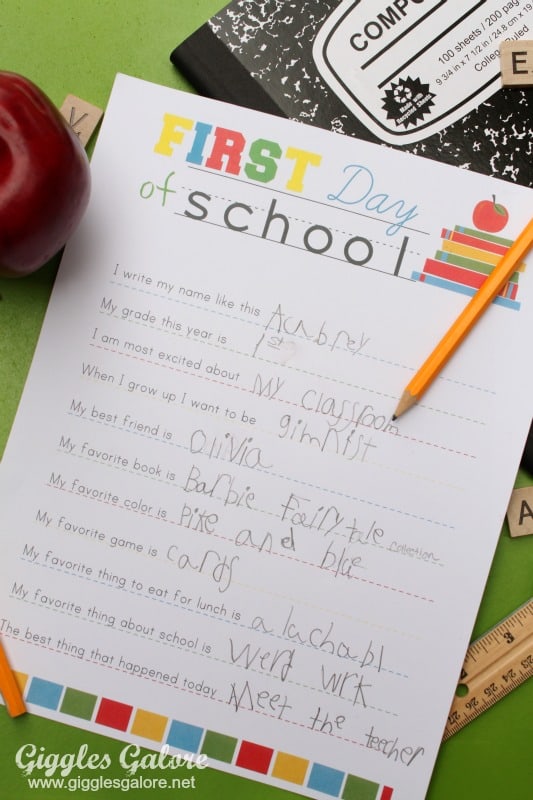 COMPO
100 sheets / 200 pag
9 3/4 in x 7 1/2 / 24.8 cm x 19
College Ruled
Made with Recycled Fibers
E
K
FIRST Day
of school
I write my name like this Acubrey
My grade this year is 1st
I am most excited about My classroom
When I grow up I want to be gimnist
My best friend is Olivia
My favorite book is Barbie Fairytale collection
My favorite color is Pike and blue
My favorite game is cards
My favorite thing to eat for lunch is a lachabl
My favorite thing about school is werd wrk
The best thing that happened today Meet the teacher
A
30 29 28 27 26 25
Giggles Galore
www.gigglesgalore.net